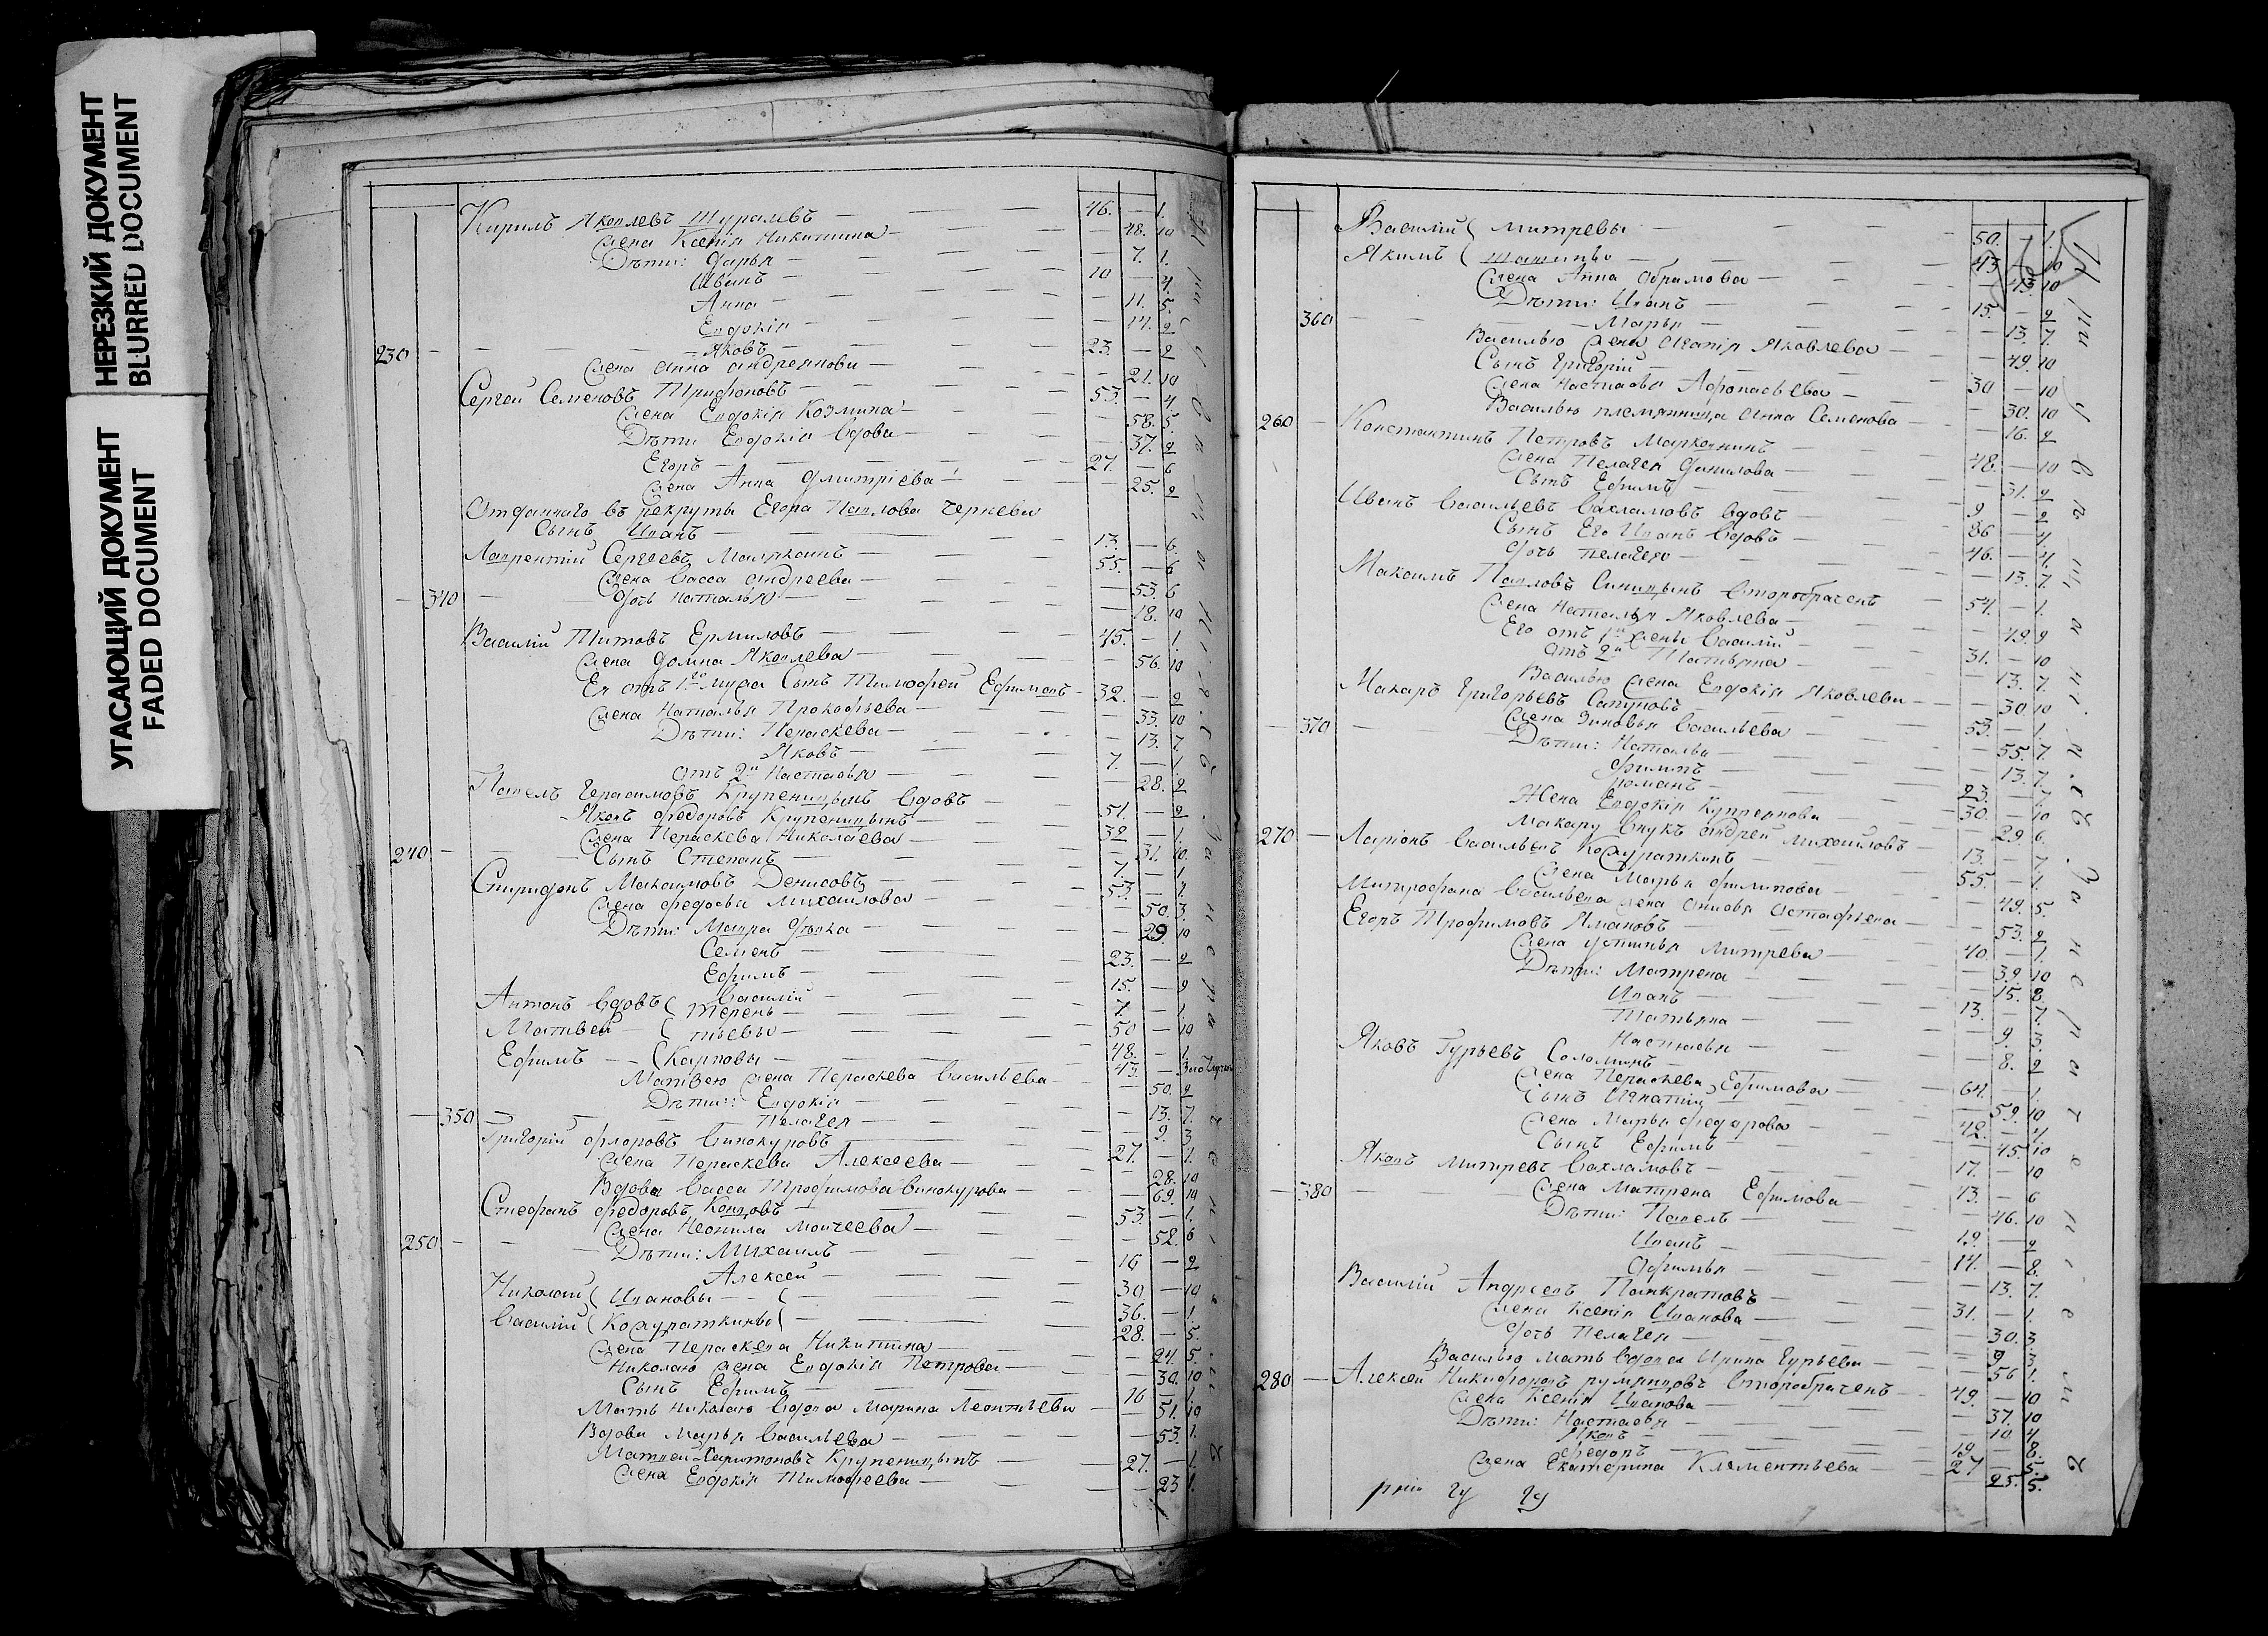 НЕРЕЗКИЙ ДОКУМЕНТ
BLURRED DOCUMENT
УГАСАЮЩИЙ ДОКУМЕНТ
FADED DOCUMENT
Кирилъ Яковлевъ Журавлевъ 46. — 1.
Жена Ксенiя Никитина — 48. 10
Дѣти: Дарья — 7. 1.
Иванъ 10 — 4.
Анна — 11. 5.
Евдокiя — 14. 2
230 Яковъ 23. — 2
Жена Анна Андреянова — 21. 10
Сергей Семеновъ Трифоновъ 53. — 4.
Жена Евдокiя Козмина — 58. 5.
Дѣти Евдокiя вдова — 37. 2
Егоръ 27. — 6
Жена Анна Дмитрiева — 25. 2
Отданнаго въ рекруты Егора Павлова
Сынъ Иванъ 13. — 6.
Лаврентiй Сергеевъ 55. — 6
Жена Васса Андреева — 53. 6
340 Дочь Наталья — 18. 10
Василiй Титовъ Ермиловъ 45. — 1.
Жена Домна Яковлева — 56. 10
Ея отъ 1го мужа Сынъ Тимофей Ефимовъ 32. — 2
Жена Наталья Прокофьева — 33. 10
Дѣти: Пераскева — 13. 7.
Яковъ 7. — 1.
отъ 2й Настасья — 28. 2
Павелъ Герасимовъ Крупеницынъ вдовъ 51. — 2
Яковъ Федоровъ Крупеницынъ 32 — 1.
Жена Пераскева Николаева — 31. 10.
240 Сынъ Степанъ 7. — 1
Спиридонъ Максимовъ Денисовъ 53. — 4.
Жена Федосья Михайлова — 50. 3.
Дѣти: Мавра Дѣвка — 29 10
Семенъ 23. — 2
Ефимъ 15. — 9
Василiй 7. — 1.
Антонъ вдовъ ( Терень 50 — 10
Матвей ( тьевы 48. — 1.
Ефимъ ( Карповы 43. —
Матвею жена Пераскева Васильева — 50. 2
Дѣти: Евдокiя — 13. 7.
350 Пелагея — 9. 3
Григорiй Флоровъ Винокуровъ 27. — 1.
Жена Пераскева Алексеева — 28. 10
Вдова Васса Трофимова Винокурова — 69. 10
Стефанъ Федоровъ 53. — 1.
Жена Неонила Моисеева — 52. 6
250 Дѣти: Михаилъ 16 — 2
Алексей 30. — 10
Николай ( Ивановы 36. — 1.
Василiй ( Кожураткины 28. — 5.
Жена Пераскева Никитина — 24. 5.
Николаю жена Евдокiя Петрова — 30. 10
Сынъ Ефимъ 16 — 1
Мать Николаю вдова Марина Леонтьева — 51. 10
Вдова Марья Васильева — 53. 1.
Матвей Харитоновъ Крупеницынъ 27. — 1.
Жена Евдокiя Тимофеева — 23 1.
Василiй ( Митревы 50. — 1.
Якимъ ( 43 — 10
Жена Анна Абрамова — 43. 10
Дѣти: Иванъ 15. — 2
360 Марья — 13. 7.
Василью жена Агапiя Яковлева — 49. 10
Сынъ Григорiй 30 — 10
Жена Настасья Афонасьева — 30. 10
Василью племянница Анна Семенова — 16. 2
260 Константинъ Петровъ 48. — 10
Жена Пелагея Данилова — 31. 2
Сынъ Ефимъ 9 — 2
Иванъ Васильевъ Вахламовъ вдовъ 86 — 4
Сынъ Его Иванъ вдовъ 46. — 4.
Дочь Пелагея — 13. 7.
Максимъ Павловъ Синицынъ второбраченъ 54. — 1.
Жена Наталья Яковлева — 49. 9
Его отъ 1й жены Василiй 31. — 10
отъ 2й Татьяна — 13. 7.
Василью жена Евдокiя Яковлева — 30. 10
Макаръ Григорьевъ Сапуновъ 53. — 1.
370 Жена Зиновья Васильева — 55. 7.
Дѣти: Наталья — 13. 7.
Филипъ 23. — 7.
Романъ 30. — 10
Жена Евдокiя Купреянова — 29. 6.
Макару внукъ Андрей Михайловъ 13. — 7.
270 Ларiонъ Васильевъ Кожураткинъ 55. — 1.
Жена Марья Филипова — 49. 5.
Митрофана Васильева жена Анисья Астафьева — 53. 2
Егоръ Трофимовъ Ямановъ 40. — 7.
Жена Устинья Митрева — 39. 10
Дѣти: Матрена — 15. 8.
Иванъ 13. — 7.
Татьяна — 9. 3.
Настасья — 8. 2
Яковъ Гурьевъ Соломинъ 64. — 1.
Жена Пераскева Ефимова — 59. 10
Сынъ Игнатiй 42. — 4.
Жена Марья Федорова — 45. 10
Сынъ Ефимъ 17. — 10
Яковъ Митревъ Вахламовъ 43. — 6
380 Жена Матрена Ефимова — 46. 10
Дѣти: Павелъ 19 — 2
Иванъ 14. — 8.
Афимья — 13. 7.
Василiй Андреевъ Панкратовъ 31. — 1.
Жена Ксенiя Иванова — 30. 3
Дочь Пелагея — 9 3.
Василью мать вдова Ирина Гурьева — 56 1.
280 Алексей Никифоровъ Румянцовъ второбраченъ 49. — 10
Жена Ксенiя Иванова — 37. 10
Дѣти: Настасья — 10 4.
Яковъ 19 — 8.
Федоръ 27 — 5.
Жена Екатерина Клементьева — 25. 5.